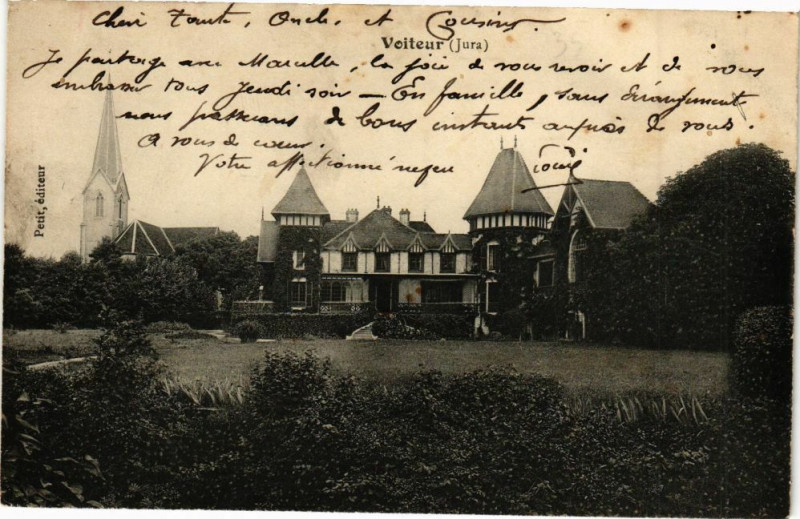 Cheri Tante, Oncle, et Cousins,
Voiteur (Jura)
Je partage avec Marcelle, la joie de vous revoir et de vous
embrasser tous jeudi soir — En famille, sans dérangements
nous passerons de bons instants auprès de vous.
A vous de cœur.
Votre affectionné neveu
Petit, éditeur